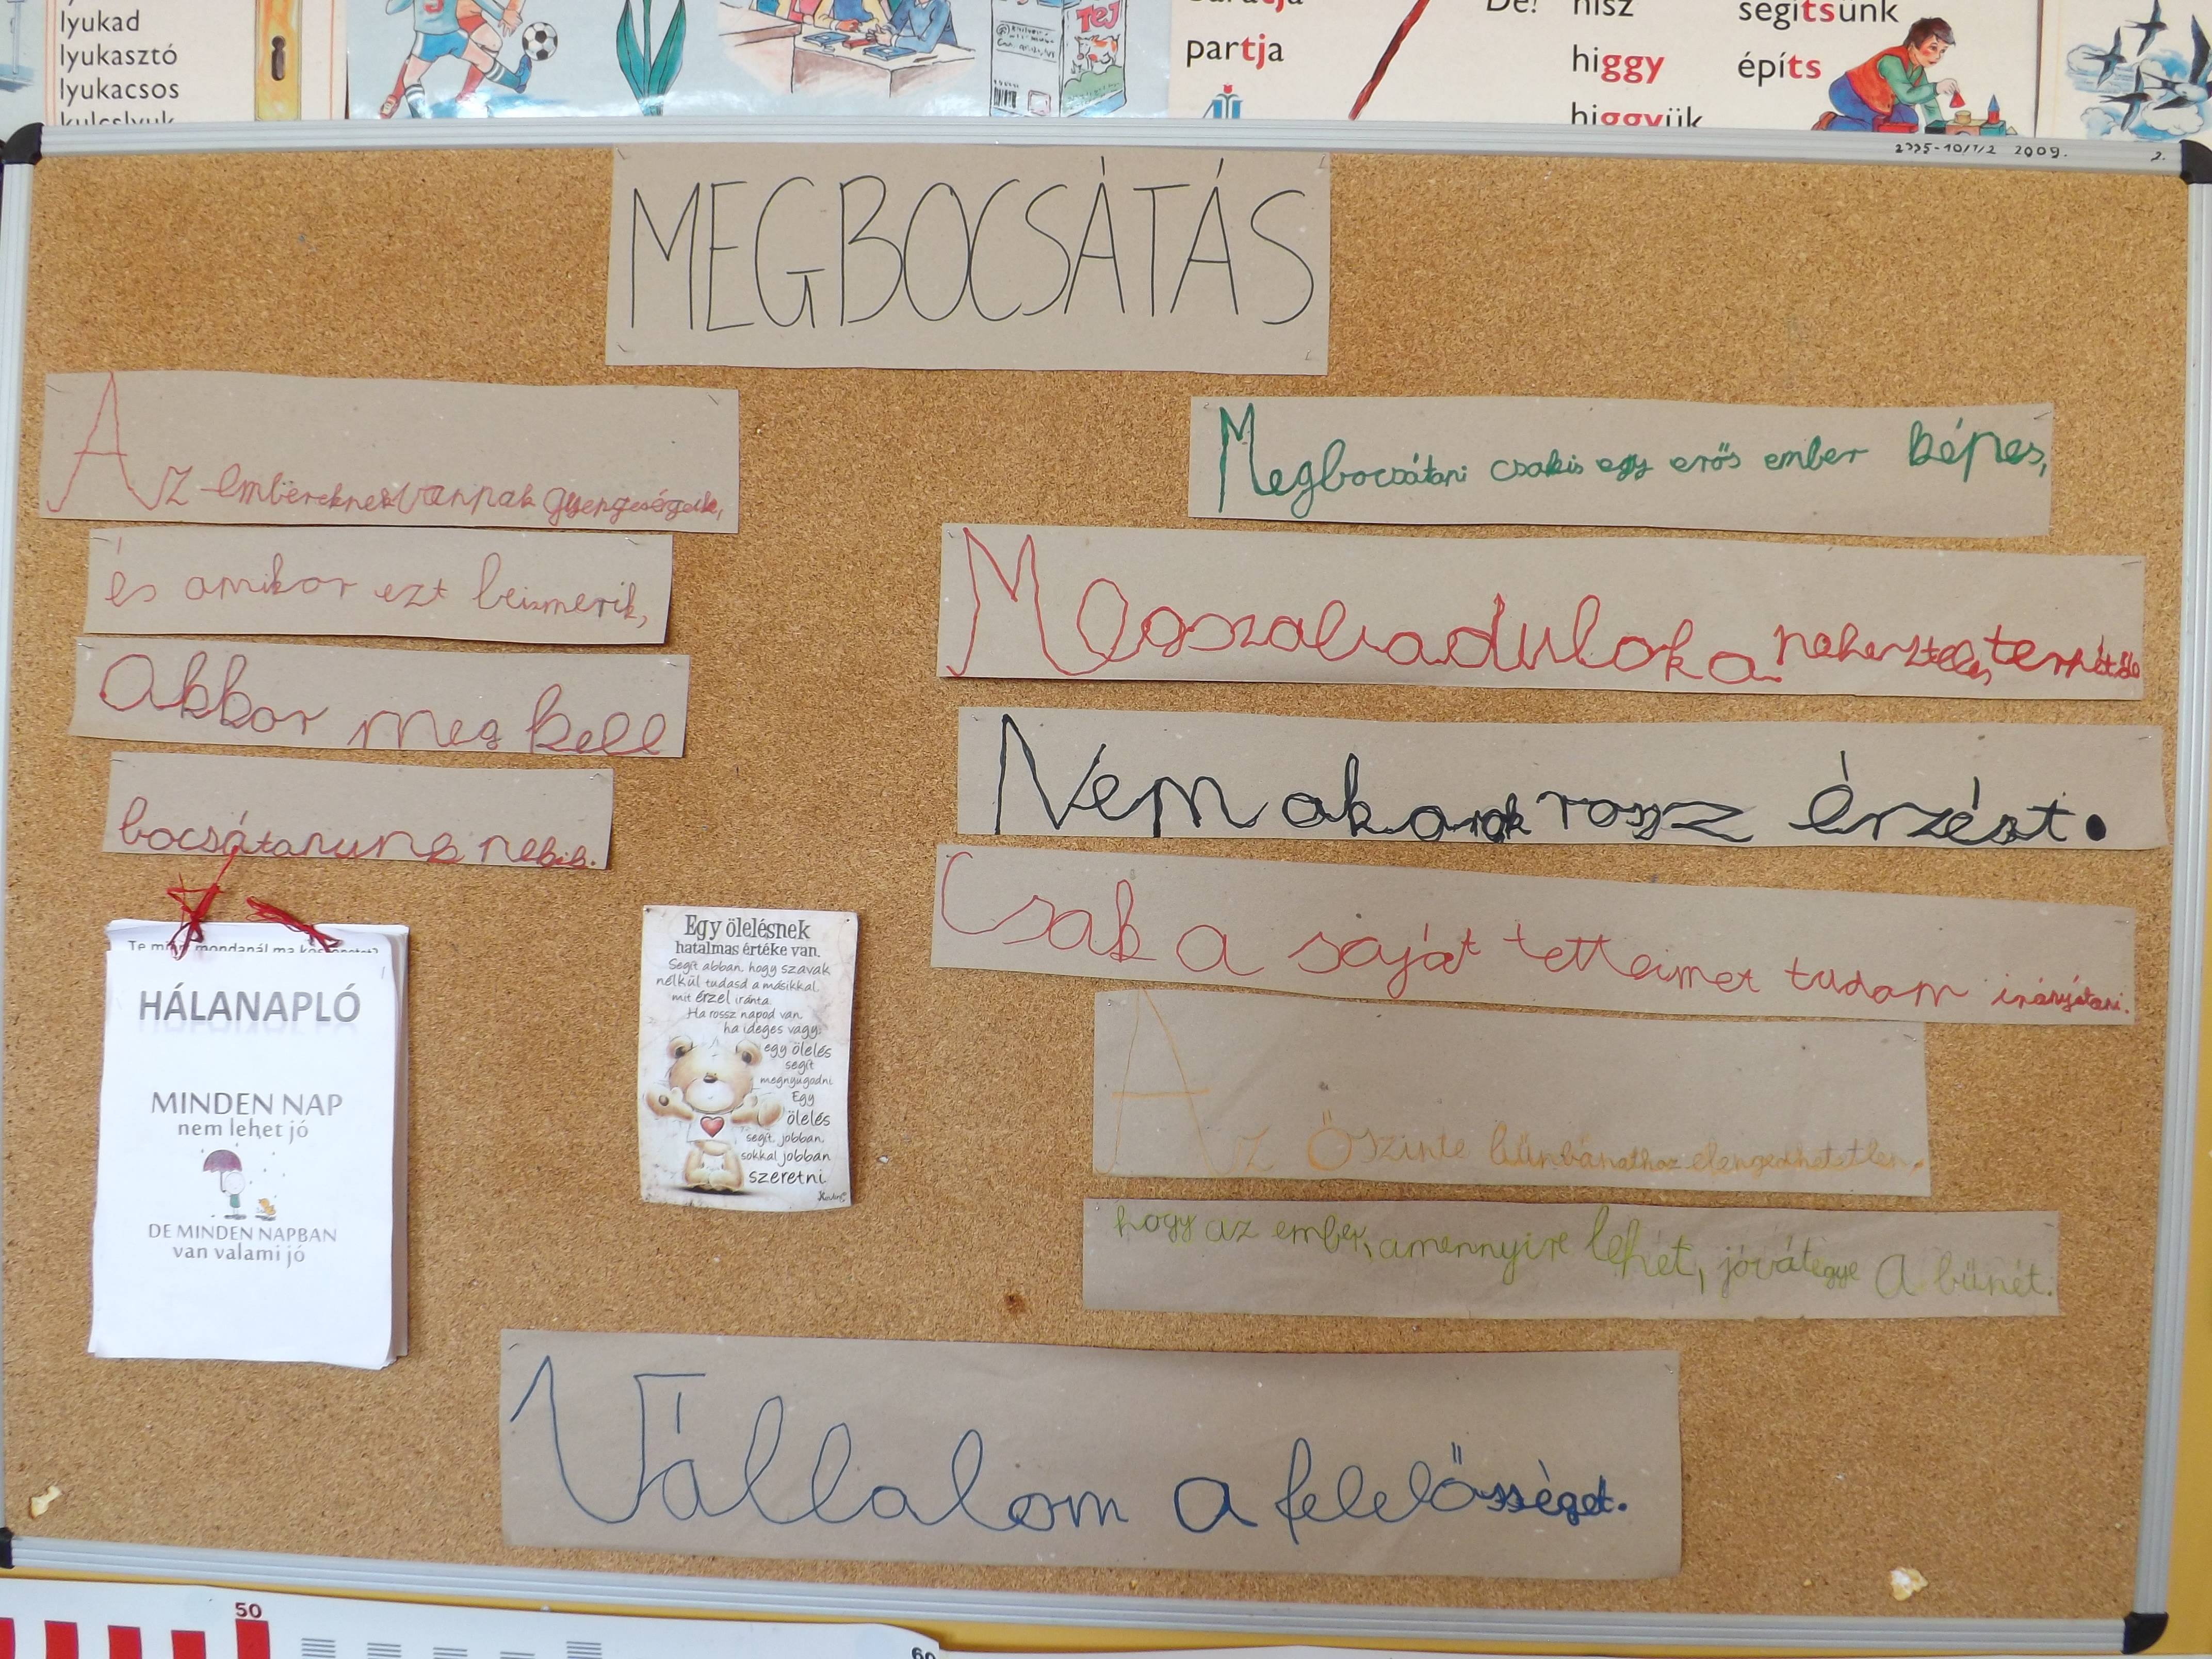 lyukad
lyukasztó
lyukacsos
kulcslyuk
TEJ
partja
De!
hisz
higgy
higgyük
segítsünk
építs
2009.
2.
MEGBOCSÁTÁS
Az embereknek vannak gyengeségeik,
és amikor ezt beismerik,
akkor meg kell
bocsátanunk nekik.
Megbocsátani csakis egy erős ember képes,
Megszabadulok a neheztelés terhétől
Nem akarok rossz érzést.
Csak a saját tetteimet tudom irányítani.
Az Őszinte bűnbánathoz elengedhetetlen,
hogy az ember, amennyire lehet, jóvátegye A bűnét.
Vállalom a felelősséget.
HÁLANAPLÓ
MINDEN NAP
nem lehet jó
DE MINDEN NAPBAN
van valami jó
Egy ölelésnek
hatalmas értéke van.
Segít abban, hogy szavak
nélkül tudasd a másikkal
mit érzel iránta.
Ha rossz napod van,
ha ideges vagy:
egy ölelés
segít
megnyugodni.
Egy
ölelés
segít, jobban,
sokkal jobban
szeretni.
50
60